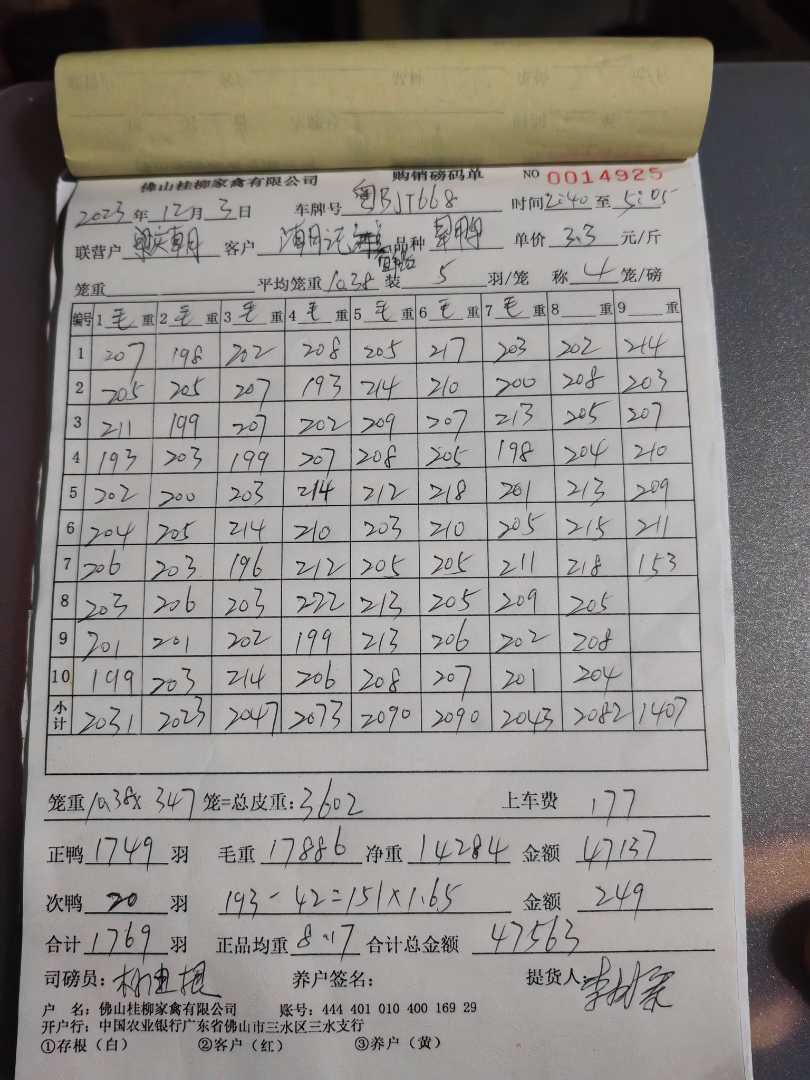 佛山桂柳家禽有限公司 购销磅码单 NO 0014925
2023年12月3日 车牌号 粤BJT668 时间2:40至5:05
联营户 梁庆朝 客户 品种 单价 3.3 元/斤
笼重 平均笼重10.38 装 5 羽/笼 称 4 笼/磅
编号 1 毛 重 2 毛 重 3 毛 重 4 毛 重 5 毛 重 6 毛 重 7 毛 重 8 重 9 重
1 207 198 202 208 205 217 203 202 214
2 205 205 207 193 214 210 200 208 203
3 211 199 207 202 209 207 213 205 207
4 193 203 199 207 208 205 198 204 210
5 202 200 203 214 212 218 201 213 209
6 204 205 214 210 203 210 205 215 211
7 206 203 196 212 205 205 211 218 153
8 203 206 203 222 213 205 209 205
9 201 201 202 199 213 206 202 208
10 199 203 214 206 208 207 201 204
小计 2031 2023 2047 2073 2090 2090 2043 2082 1407
笼重10.38×347笼=总皮重:3602 上车费 177
正鸭 1749 羽 毛重 17886 净重 14284 金额 47137
次鸭 20 羽 193-42=151×1.65 金额 249
合计 1769 羽 正品均重 8.17 合计总金额 47563
司磅员: 养户签名: 提货人:
户 名:佛山桂柳家禽有限公司 账号:444 401 010 400 169 29
开户行:中国农业银行广东省佛山市三水区三水支行
①存根(白) ②客户(红) ③养户(黄)